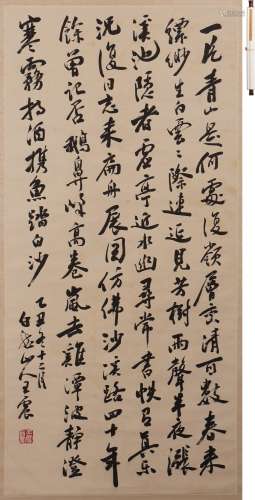 一片青山是何處復嶺層巒清可數春来
縹緲生白雲雲際遠近見芳樹雨聲半夜漲
溪池隣者虚亭近水幽尋常書帙召真樂
況復日忘来扁舟展圖仿佛沙溪路四十年
餘曾記否鵝鼻峰高卷嵐去雞潭波静澄
寒霧披酒攜魚踏白沙
乙丑冬十二月
白龍山人王震